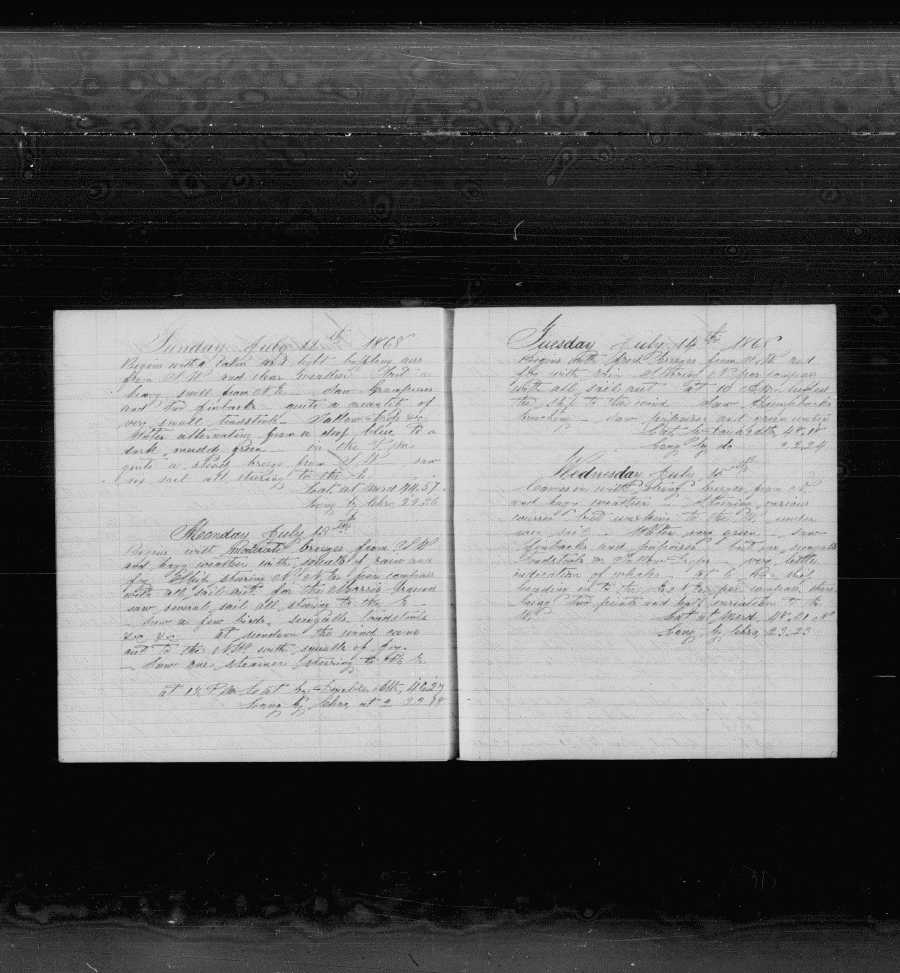 Sunday July 12th 1868
Begins with a calm and light baffling airs
from S W and clear weather but a
heavy swell from N E saw Grampuses
and two finbacks quite a quantity of
very small toadstools &c
Water alternating from a deep blue to a
dark muddy green in the P m
quite a steady breeze from S W saw
six sail all steering to the E
Lat at Merd 44.57
Long by Chro 29.36
Monday July 13th
Begins with moderate breezes from S W
and hazy weather with squalls of rain and
fog Ship steering N E per compass
with all sail out for the ground
saw several sail all steering to the E
Saw a few birds seagulls toadstools
&c &c at sundown the wind came
out to the N W with of fog
Saw one steamer steering to the E
at 12 P m Lat by Double Alt,
Long by Chro, at 2
Tuesday July 14th 1868
Begins with fresh breezes from S W and
fog with rain Steering N per compass
with all sail out at 10
the ship to the wind saw
saw porpoises and green water
Lat by Double alt, 48,18
Long by do 22.24
Wednesday July 15th
Commences with strong breezes from
and hazy weather Steering various
courses and working to the under
sail Water very green saw
finbacks and porpoises but no seagulls
toadstools or very little
indication of whales at 6 ship
heading on to the E per compass there
being two points and half variation to the
W Lat at Merd, 48,21
Long by Chro, 23,23